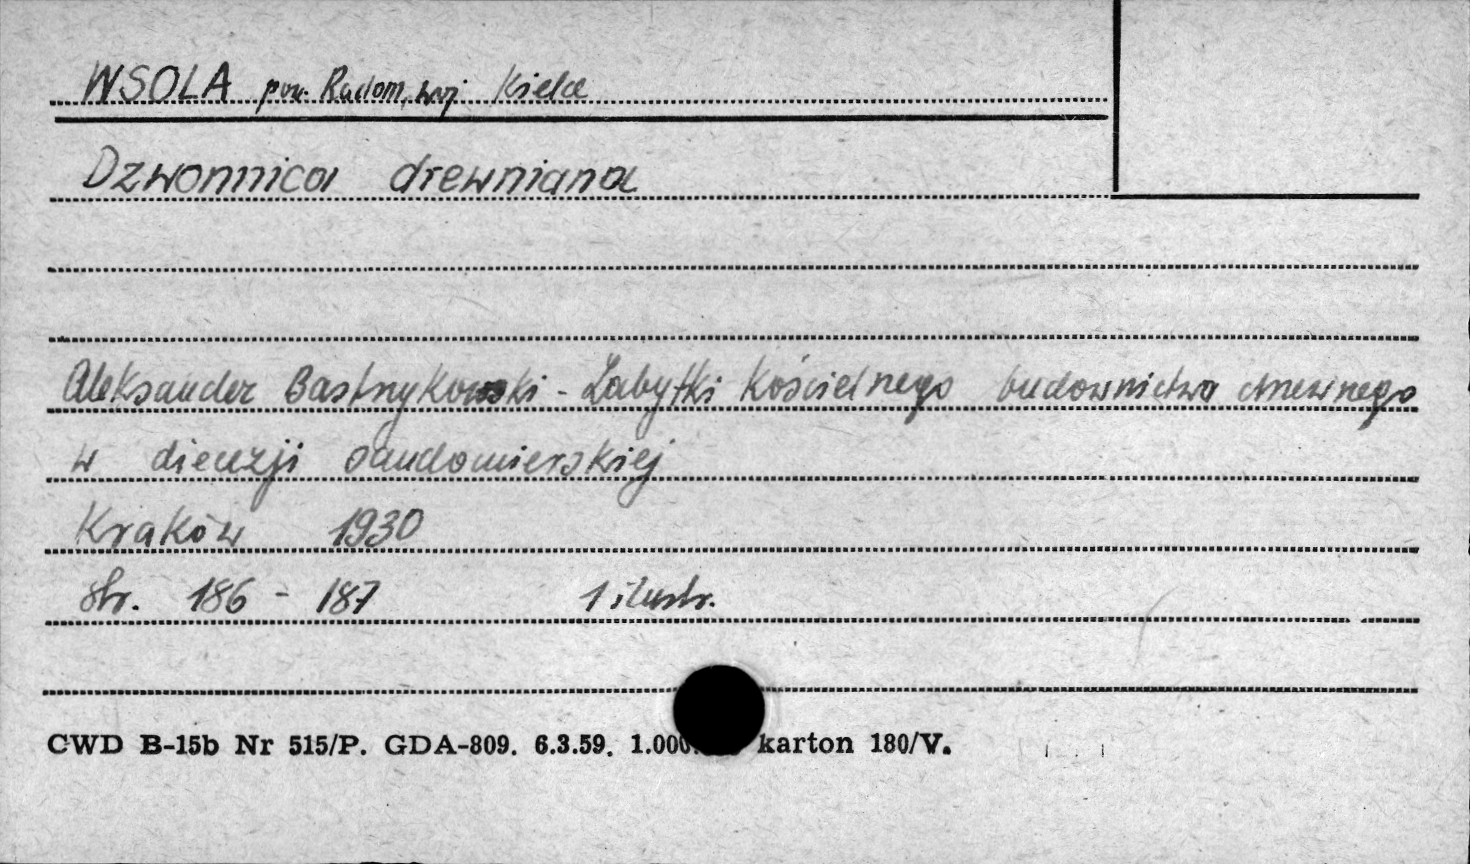 WSOLA pow. Radom, woj. Kielce
Dzwonnica drewniana
Aleksander Bastrzykowski - Zabytki Kościelnego budownictwa drewnego
w diecezji sandomierskiej
Kraków 1930
str. 186 - 187 1 ilustr.
CWD B-15b Nr 515/P. GDA-809. 6.3.59. 1.000. karton 180/V.